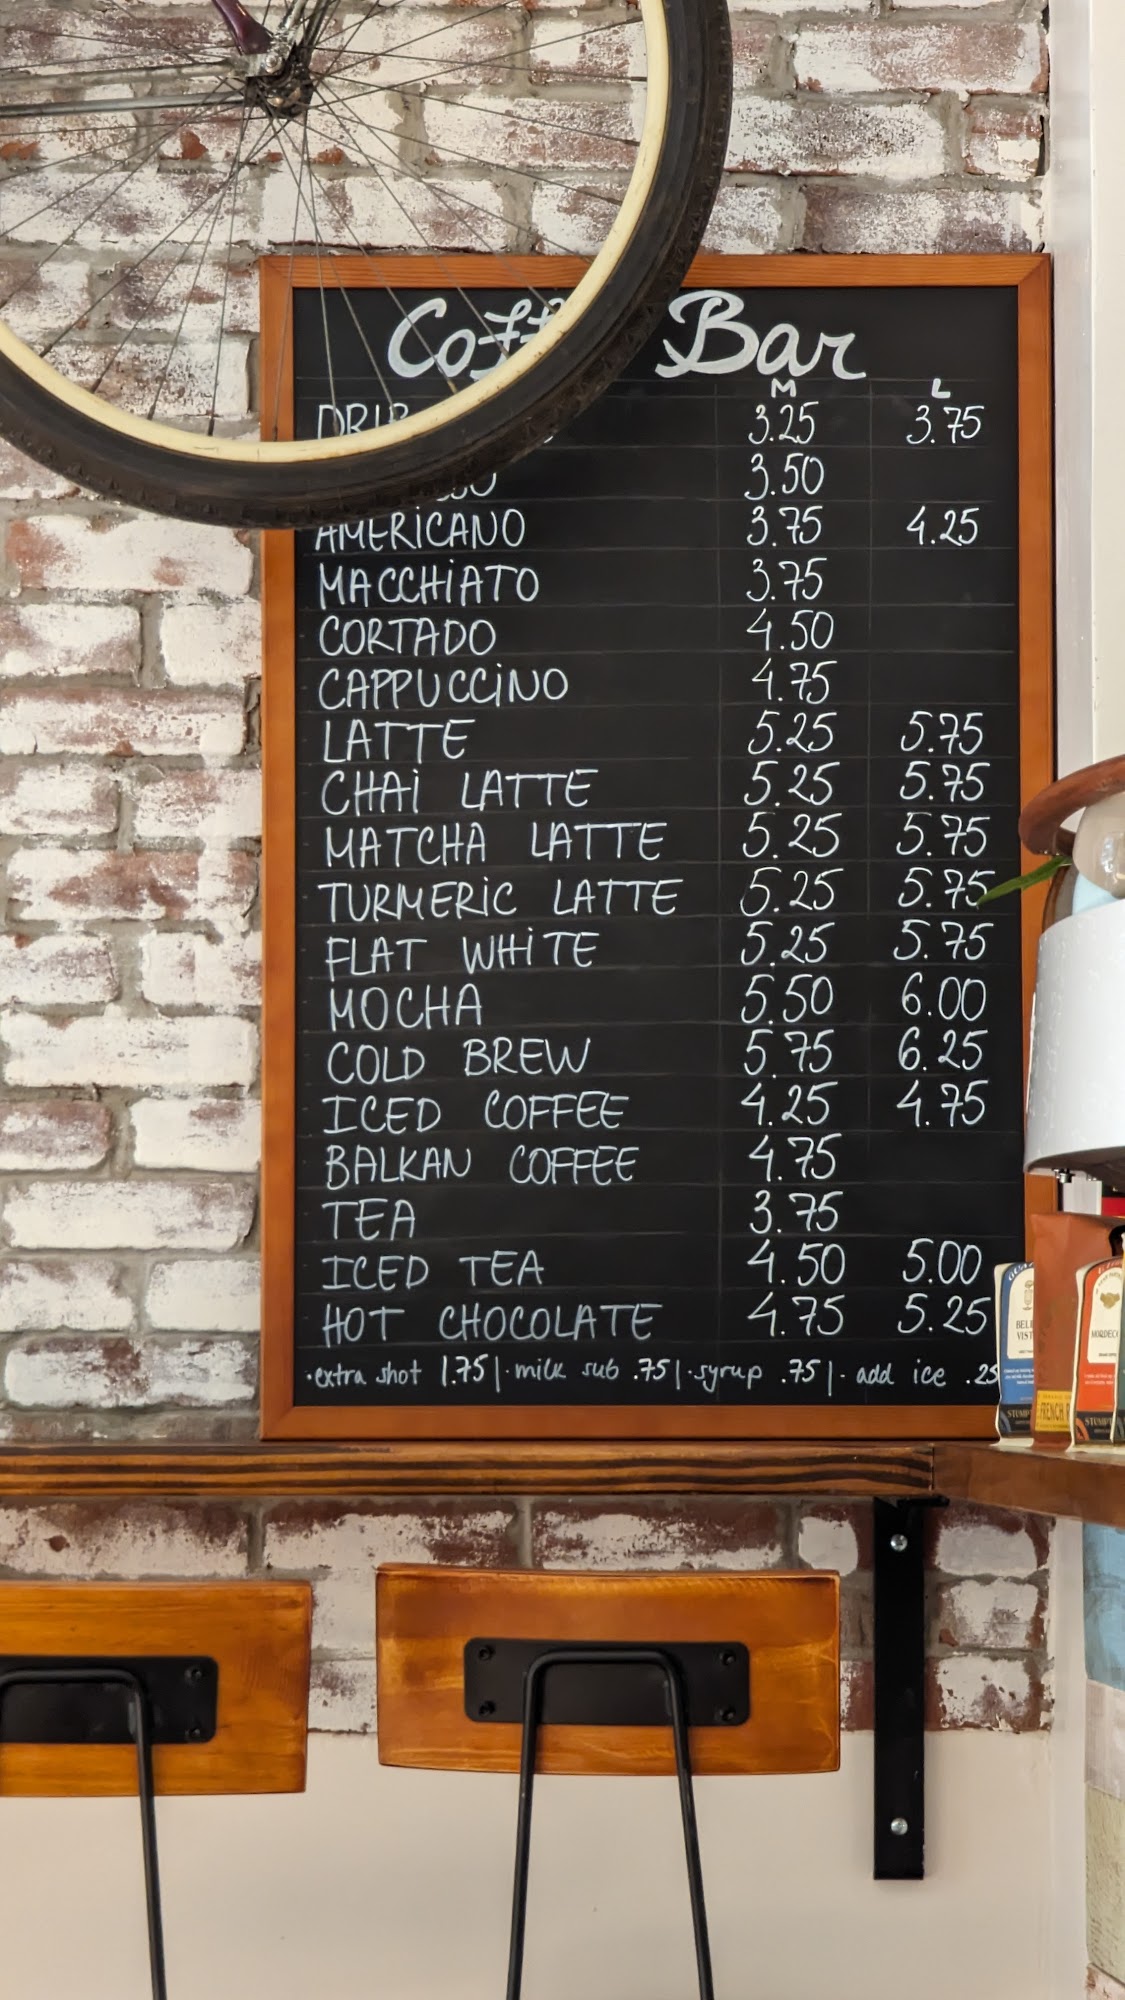 Bar
M L
3.25 3.75
3.50
AMERICANO 3.75 4.25
MACCHIATO 3.75
CORTADO 4.50
CAPPUCCINO 4.75
LATTE 5.25 5.75
CHAI LATTE 5.25 5.75
MATCHA LATTE 5.25 5.75
TURMERIC LATTE 5.25 5.75
FLAT WHITE 5.25 5.75
MOCHA 5.50 6.00
COLD BREW 5.75 6.25
ICED COFFEE 4.25 4.75
BALKAN COFFEE 4.75
TEA 3.75
ICED TEA 4.50 5.00
HOT CHOCOLATE 4.75 5.25
·extra shot 1.75 | · milk sub .75 | · syrup .75 | · add ice .25